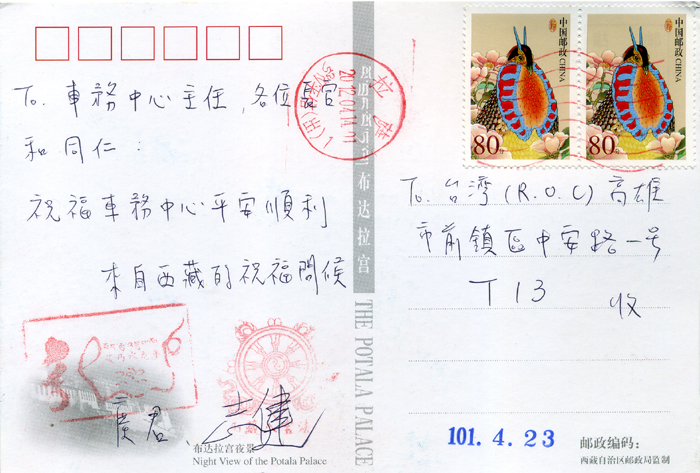 To. 車務中心主任, 各位長官
和同仁:
祝福車務中心平安順利
來自西藏的祝福問候
志健
布达拉宫夜景
Night View of the Potala Palace
布达拉宫
THE POTALA PALACE
拉萨
2012.04.14
中国邮政 CHINA
80分
中国邮政 CHINA
80分
To. 台灣 (R.O.C) 高雄
市前鎮區中安路一号
T13 收
101. 4. 23
邮政编码:
西藏自治区邮政局监制